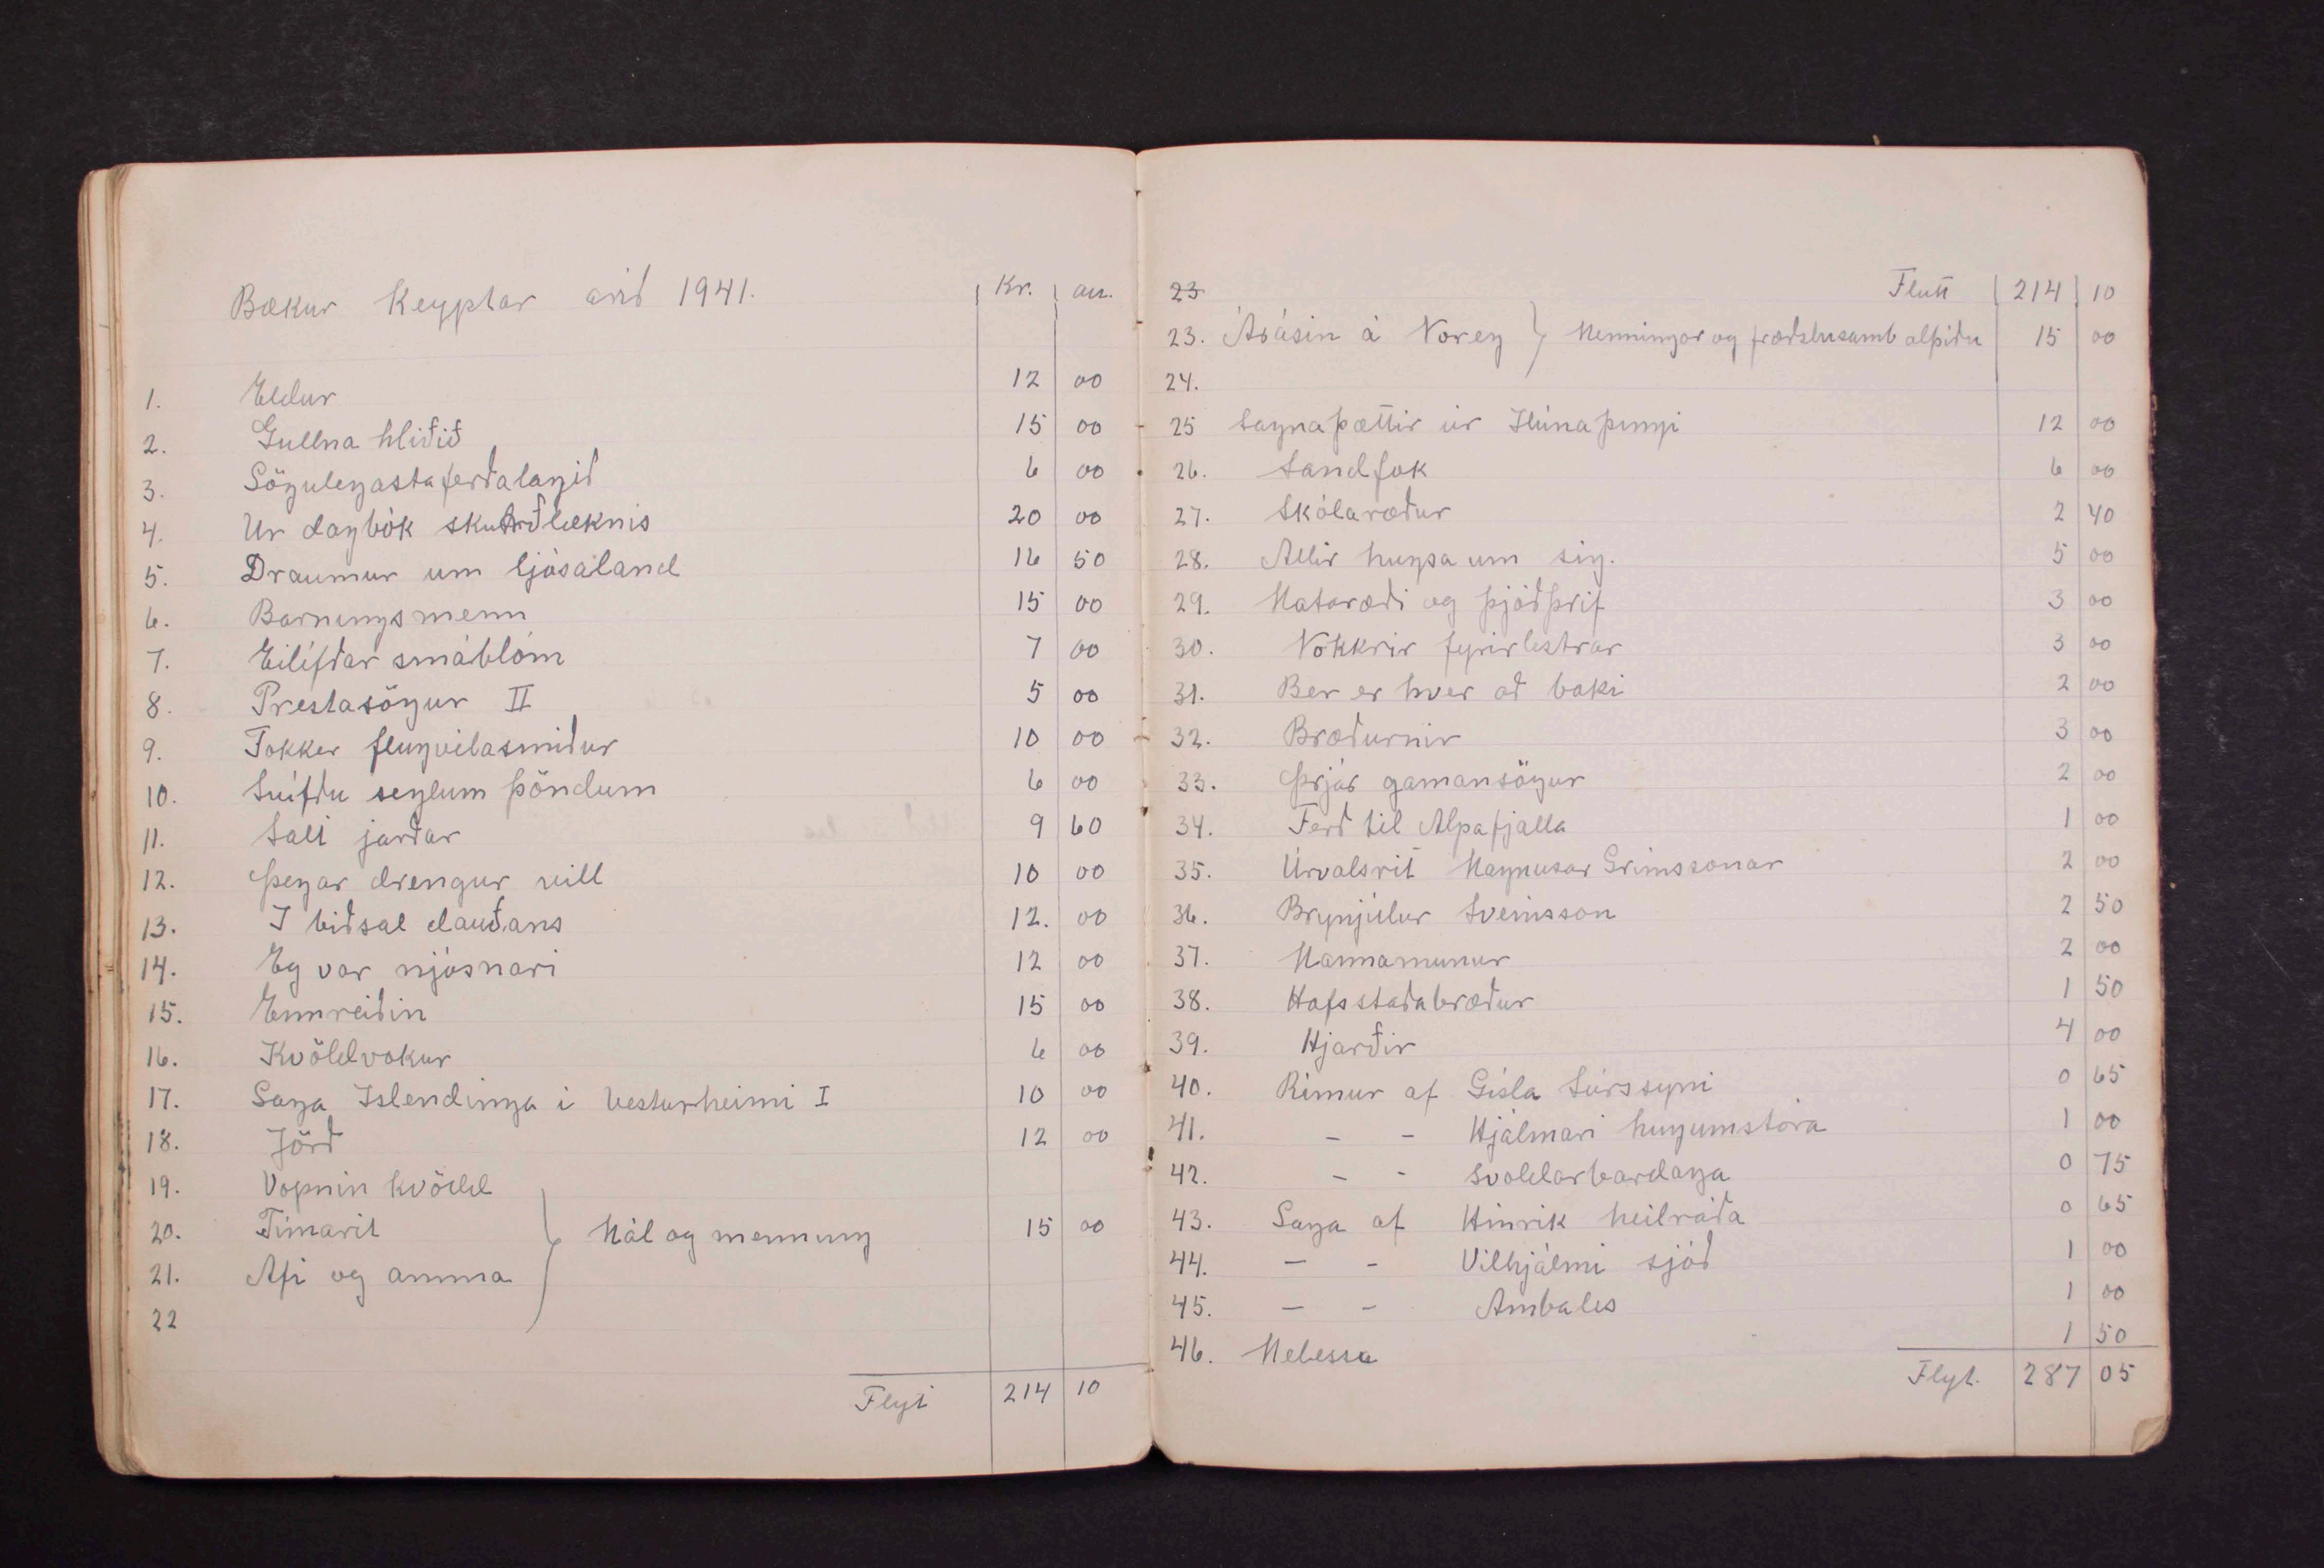 Bækur Keyptar árið 1941. Kr. au.
1. Eldur 12 00
2. Gullna hliðið 15 00
3. Sögulegasta ferðalagið 6 00
4. Ur dagbók skurðlæknis 20 00
5. Draumur um ljósaland 16 50
6. Barningsmenn 15 00
7. Eilífðar smáblóm 7 00
8. Prestasögur II 5 00
9. Fokker flugvélasmiður 10 00
10. Svífðu seglum þöndum 6 00
11. Salt jarðar 9 60
12. Þegar drengur vill 10 00
13. I biðsal dauðans 12. 00
14. Eg var njósnari 12 00
15. Eimreiðin 15 00
16. Kvöldvökur 6 00
17. Saga Islendinga i Vesturheimi I 10 00
18. Jörð 12 00
19. Vopnin kvödd
20. Tímarit } Mál og menning 15 00
21. Afi og amma
22
Flyt 214 10
23 Flutt 214 10
23. Árásin á Noreg } Menningar og fræðslusamb alþíðu 15 00
24.
25 Sagnaþættir úr Húnaþingi 12 00
26. Sandfok 6 00
27. Skólaræður 2 40
28. Allir hugsa um sig. 5 00
29. Mataræði og þjóðþrif 3 00
30. Nokkrir fyrirlestrar 3 00
31. Ber er hver að baki 2 00
32. Bræðurnir 3 00
33. Þrjár gamansögur 2 00
34. Ferð til Alpafjalla 1 00
35. Úrvalsrit Magnusar Grímssonar 2 00
36. Brynjúlur Sveinsson 2 50
37. Mannamunur 2 00
38. Hafsstaðabræður 1 50
39. Hjarðir 4 00
40. Rímur af Gísla Súrssyni 0 65
41. - - Hjálmari hugumstóra 1 00
42. - - Svoldarbardaga 0 75
43. Saga af Hinrik heilráða 0 65
44. - - Vilhjálmi sjóð 1 00
45. - - Ambales 1 00
46. Melessu 1 50
Flyt. 287 05